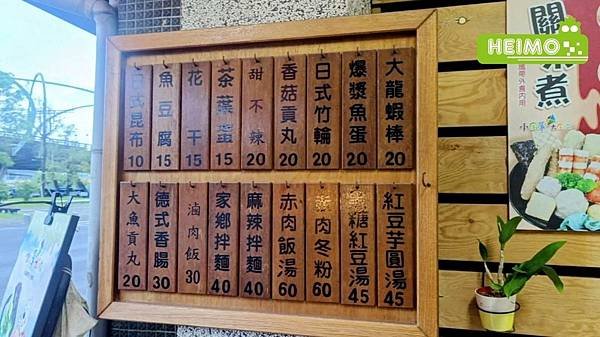 HEIMO
關東煮
大龍蝦棒 20
爆漿魚蛋 20
日式竹輪 20
香菇貢丸 20
甜不辣 20
茶葉蛋 15
花干 15
魚豆腐 15
日式昆布 10
紅豆芋圓湯 45
糖紅豆湯 45
肉冬粉 60
赤肉飯湯 60
麻辣拌麵 40
家鄉拌麵 40
滷肉飯 30
德式香腸 30
大魚貢丸 20